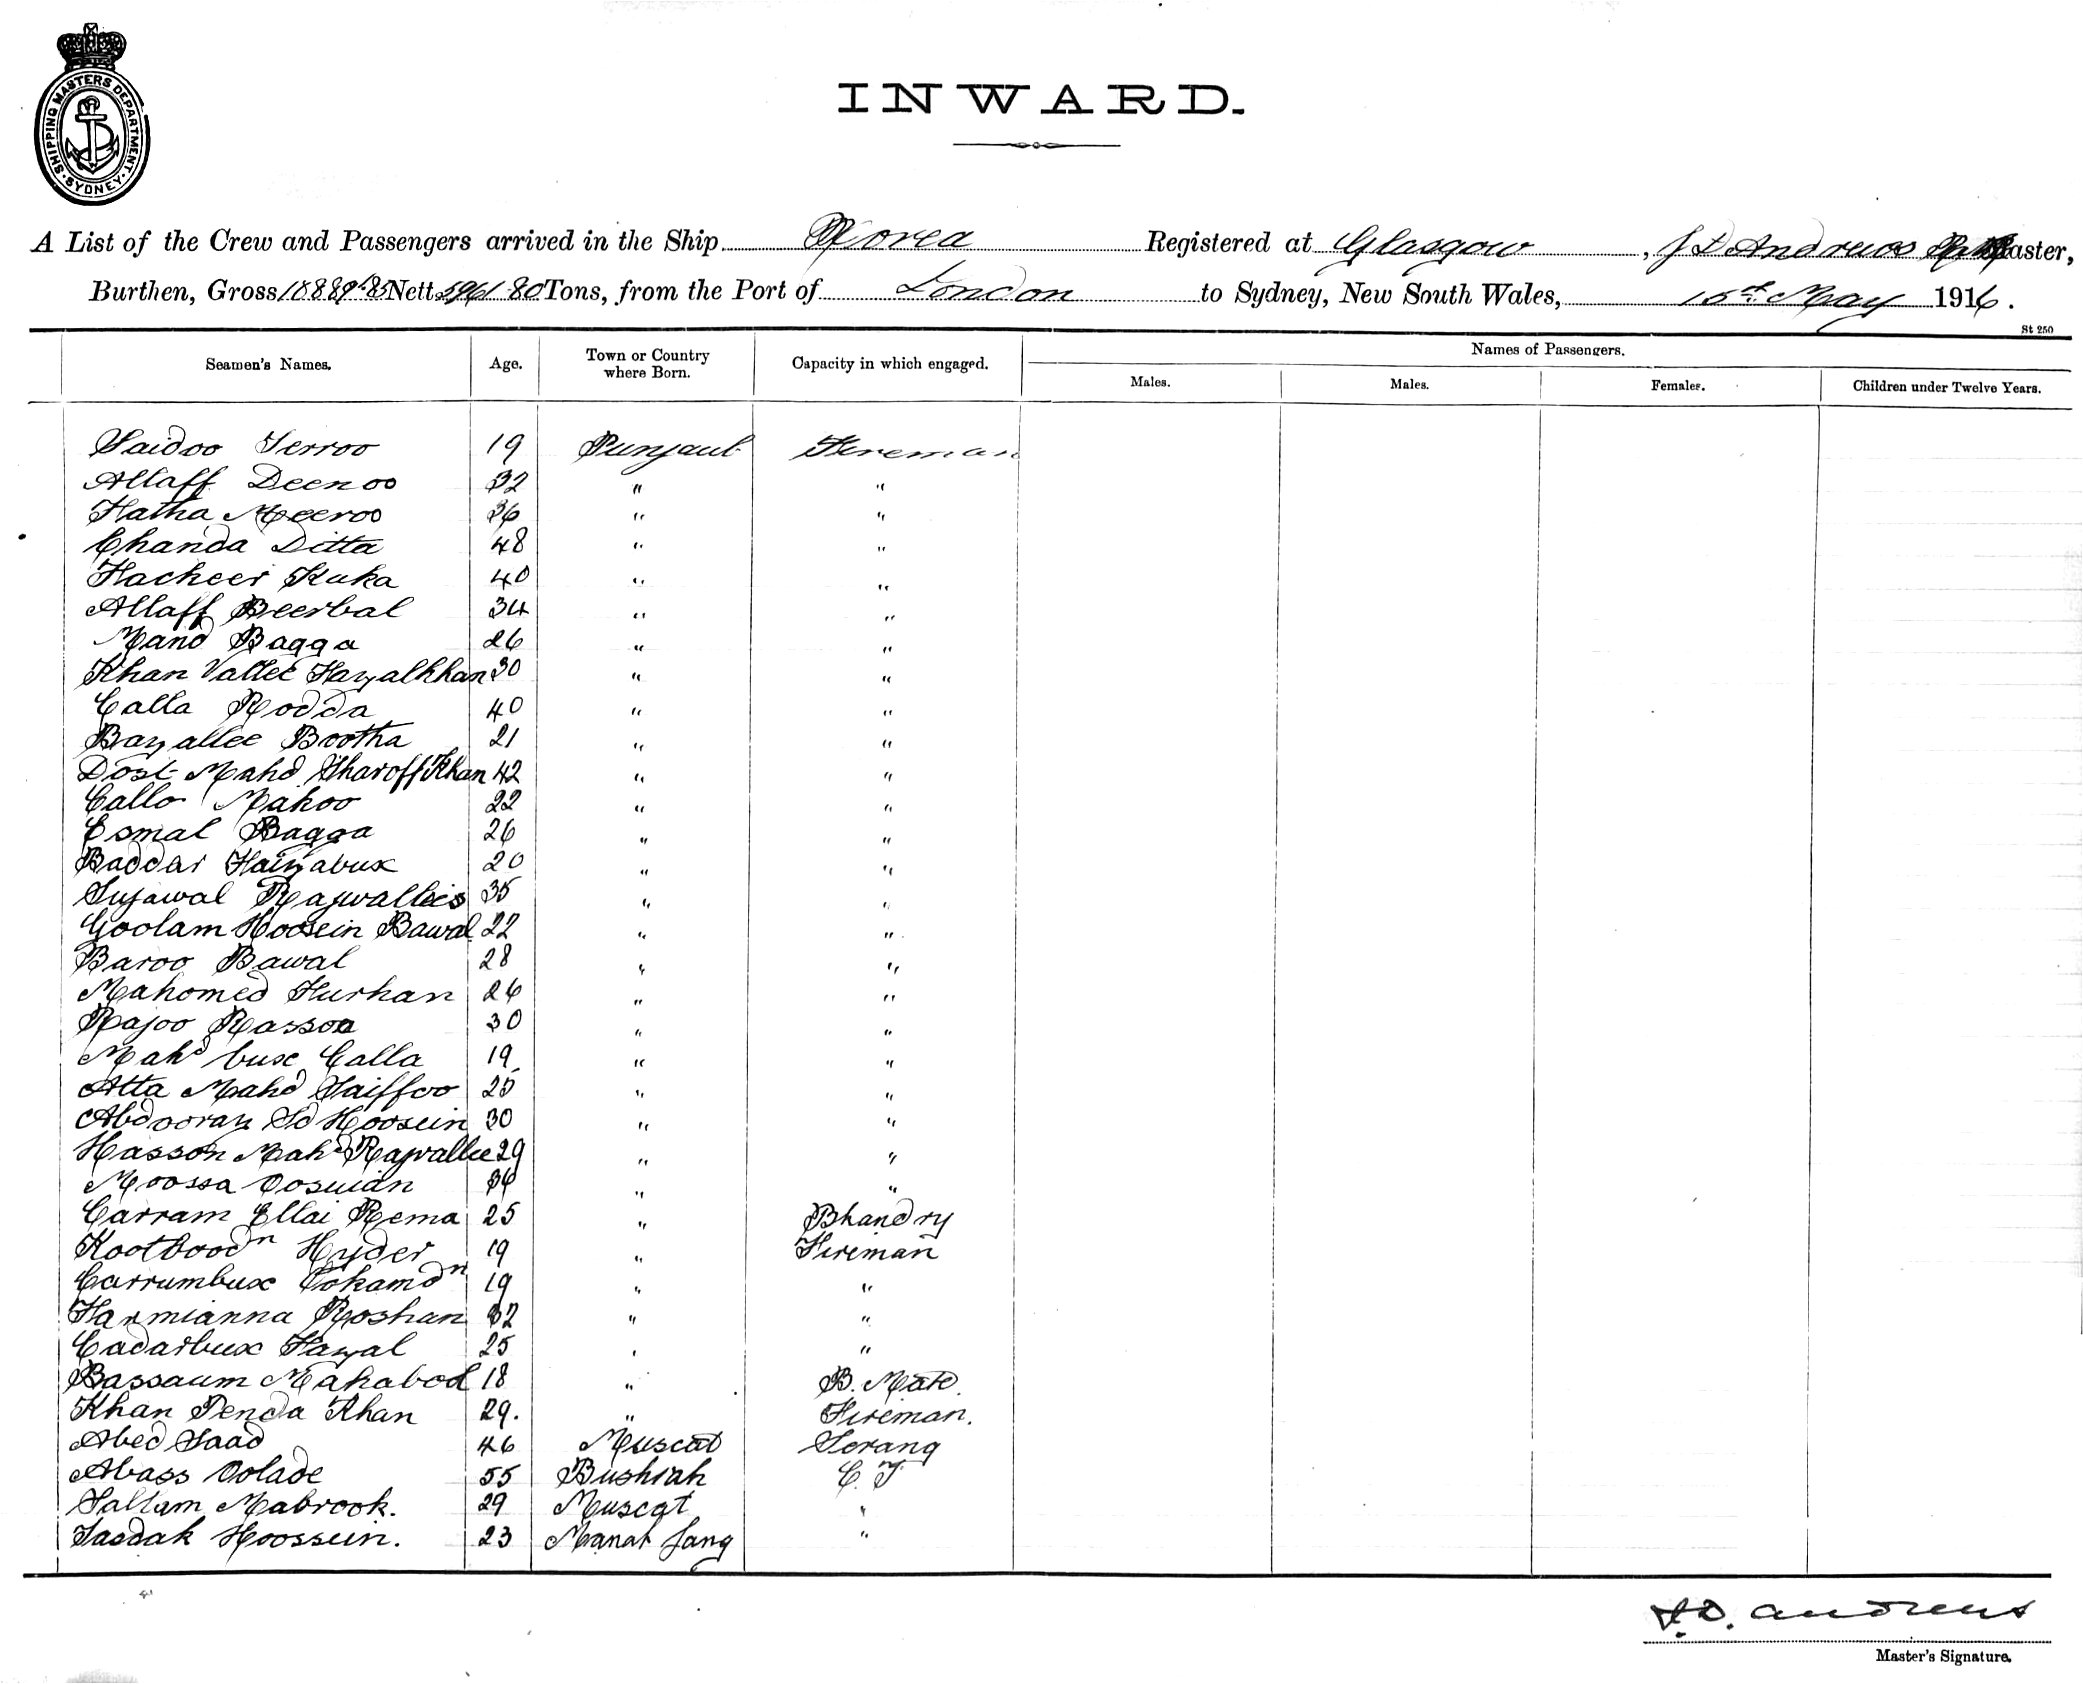 SHIPPING MASTERS DEPARTMENT. SYDNEY
INWARD.
A List of the Crew and Passengers arrived in the Ship Korea Registered at Glasgow, J D Andrews Master,
Burthen, Gross Nett 5961.80 Tons, from the Port of London to Sydney, New South Wales, 15th May 1916.
St 250
Seamen's Names. Age. Town or Country where Born. Capacity in which engaged. Names of Passengers.
Males. Males. Females. Children under Twelve Years.
Saidoo Serroo 19 Punjaub Fireman
Allaff Deenoo 32 " "
Hatha Meeroo 36 " "
Chanda Ditta 48 " "
Hacheer Kuka 40 " "
Allaff Beerbal 34 " "
Mand Bagga 26 " "
Khan Vallee Fazalkhan 30 " "
Calla Rodda 40 " "
Bazallee Bootha 21 " "
Dost Mahd Sharoff Khan 42 " "
Callo Mahoo 22 " "
Esmal Bagga 26 " "
Baddar Faizabux 20 " "
Sujawal Rajwallies 35 " "
Goolam Hoosein Bawal 22 " "
Baroo Bawal 28 " "
Mahomed Hurhan 26 " "
Rajoo Rassoa 30 " "
Mahd bux Calla 19 " "
Atta Mahd Saiffoo 25 " "
Abdooraz Sd Hoosein 30 " "
Hasson Mahd Rajvallee 29 " "
Moossa Oosman " "
Carram Ellai Rema 25 " Bhandry
Kootboodn Hyder 19 " Fireman
Carrumbux Cokamdn 19 " "
Harmianna Roshan 32 " "
Cadarbux Fazal 25 " "
Bassaum Mahabod 18 " B. Mate.
Khan Penda Khan 29. " Fireman.
Abed Saad 46 Muscat Serang
Abass Oolade 55 Bushiah C. T
Sallum Mabrook. 29 Muscat "
Sasdak Hoossein. 23 Manat Jang "
J.D. Andrews
Master's Signature.